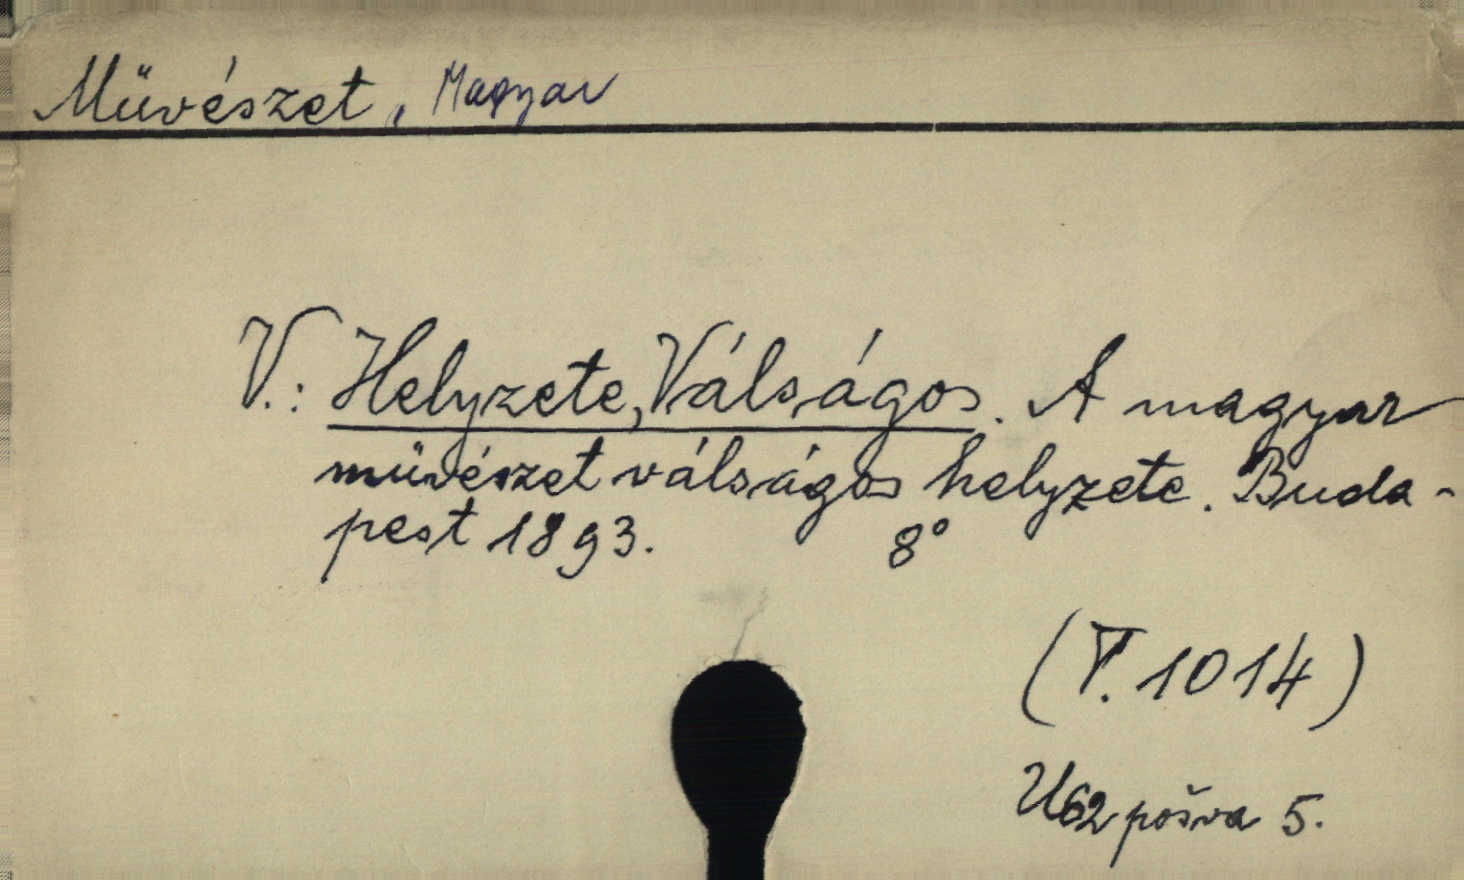 Művészet, Magyar
V.: Helyzete, Válságos. A magyar
művészet válságos helyzete. Buda-
pest 1893. 8°
(T. 1014)
U62 pošva 5.